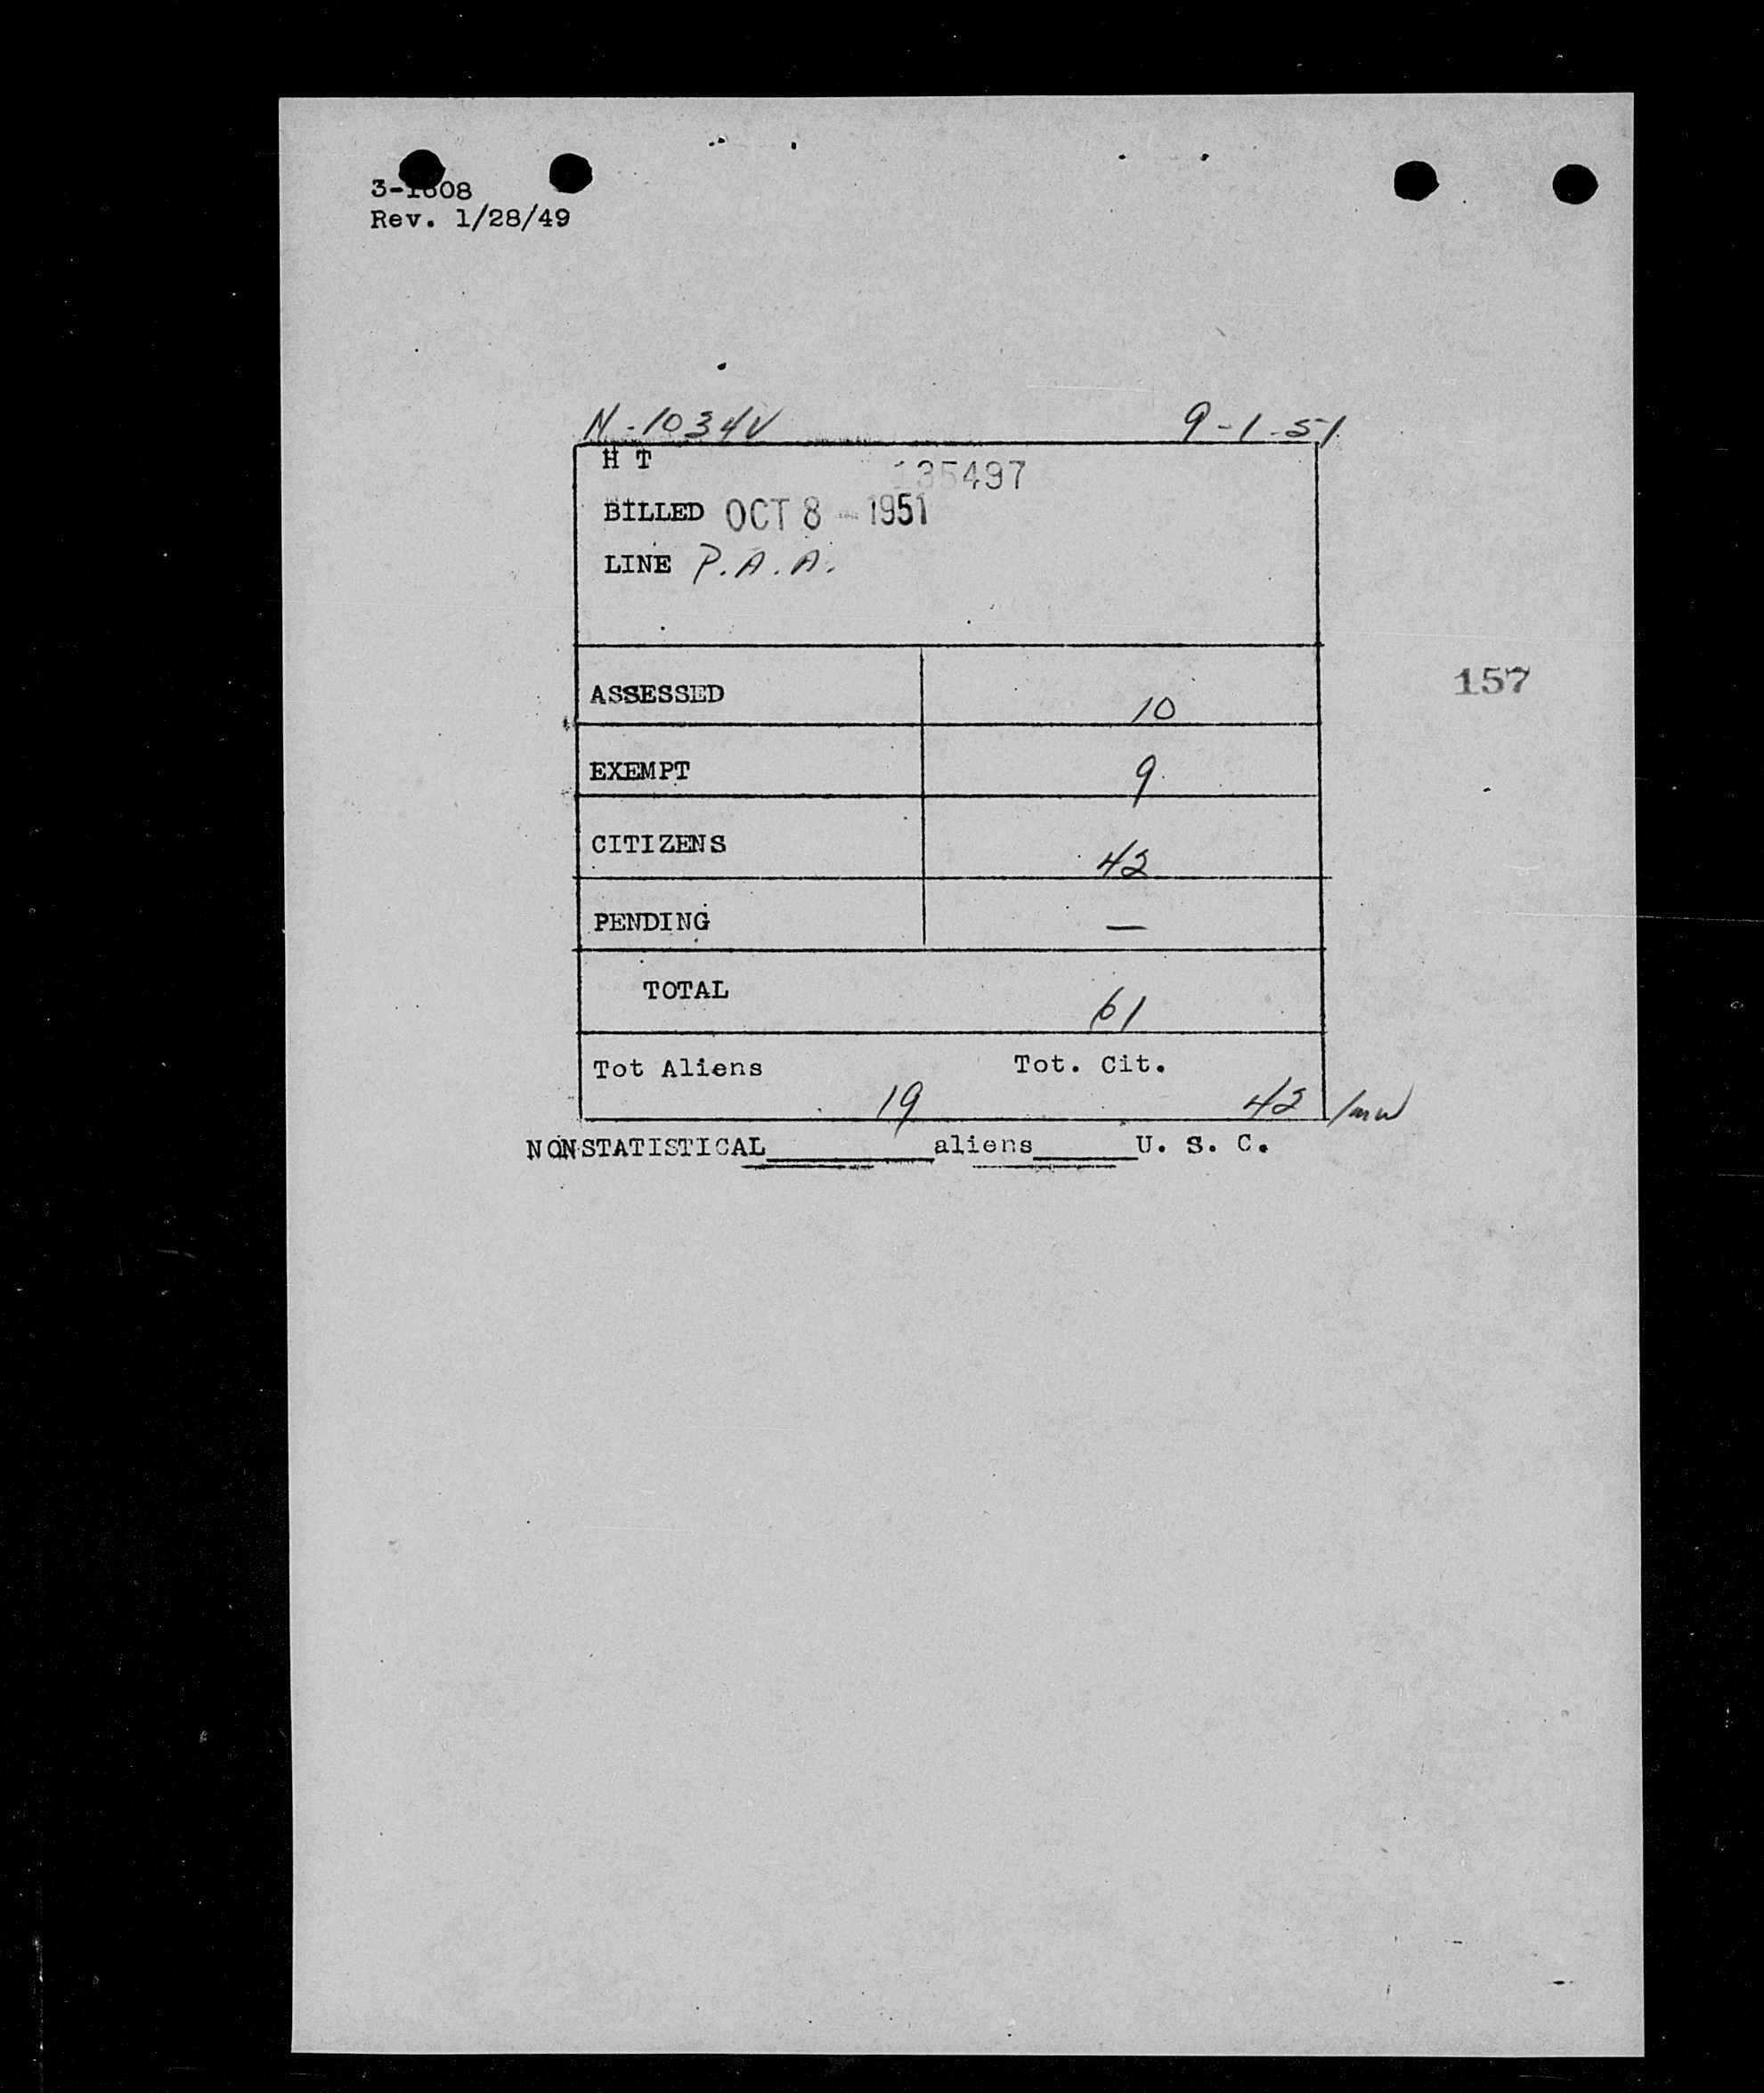 3-1608
Rev. 1/28/49
N-1034V 9-1-51
H T 135497
BILLED OCT 8 - 1951
LINE P.A.A.
ASSESSED 10
157
EXEMPT 9
CITIZENS 42
PENDING —
TOTAL 61
Tot Aliens 19 Tot. Cit. 42 /mw
NONSTATISTICAL__________aliens______U. S. C.